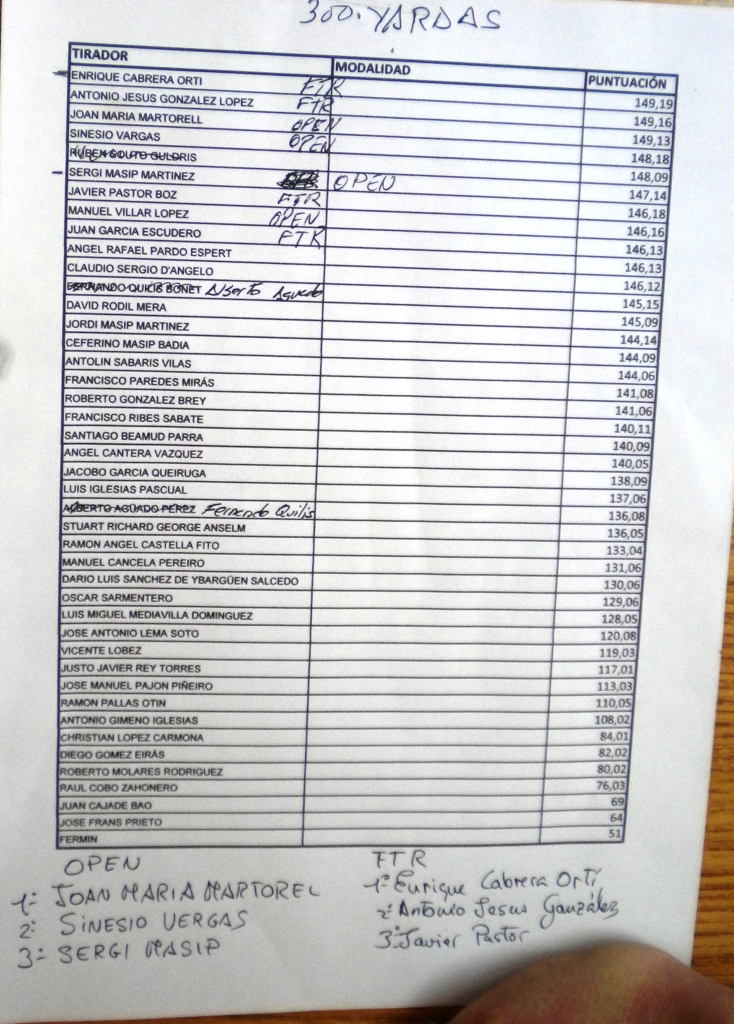 300 YARDAS
TIRADOR MODALIDAD PUNTUACIÓN
ENRIQUE CABRERA ORTI FTR 149,19
ANTONIO JESUS GONZALEZ LOPEZ FTR 149,16
JOAN MARIA MARTORELL OPEN 149,13
SINESIO VARGAS OPEN 148,18
RUBEN SOUTO GULDRIS 148,09
SERGI MASIP MARTINEZ OPEN 147,14
JAVIER PASTOR BOZ FTR 146,18
MANUEL VILLAR LOPEZ OPEN 146,16
JUAN GARCIA ESCUDERO FTR 146,13
ANGEL RAFAEL PARDO ESPERT 146,13
CLAUDIO SERGIO D'ANGELO 146,12
FERNANDO QUILIS BONET Alberto Aguado 145,15
DAVID RODIL MERA 145,09
JORDI MASIP MARTINEZ 144,14
CEFERINO MASIP BADIA 144,09
ANTOLIN SABARIS VILAS 144,06
FRANCISCO PAREDES MIRÁS 141,08
ROBERTO GONZALEZ BREY 141,06
FRANCISCO RIBES SABATE 140,11
SANTIAGO BEAMUD PARRA 140,09
ANGEL CANTERA VAZQUEZ 140,05
JACOBO GARCIA QUEIRUGA 138,09
LUIS IGLESIAS PASCUAL 137,06
ALBERTO AGUADO PEREZ Fernando Quilis 136,08
STUART RICHARD GEORGE ANSELM 136,05
RAMON ANGEL CASTELLA FITO 133,04
MANUEL CANCELA PEREIRO 131,06
DARIO LUIS SANCHEZ DE YBARGÜEN SALCEDO 130,06
OSCAR SARMENTERO 129,06
LUIS MIGUEL MEDIAVILLA DOMINGUEZ 128,05
JOSE ANTONIO LEMA SOTO 120,08
VICENTE LOBEZ 119,03
JUSTO JAVIER REY TORRES 117,01
JOSE MANUEL PAJON PIÑEIRO 113,03
RAMON PALLAS OTIN 110,05
ANTONIO GIMENO IGLESIAS 108,02
CHRISTIAN LOPEZ CARMONA 84,01
DIEGO GOMEZ EIRÁS 82,02
ROBERTO MOLARES RODRIGUEZ 80,02
RAUL COBO ZAHONERO 76,03
JUAN CAJADE BAO 69
JOSE FRANS PRIETO 64
FERMIN 51
OPEN
1º JOAN MARIA MARTOREL
2º SINESIO VERGAS
3º SERGI MASIP
FTR
1º Enrique Cabrera Ortí
2º Antonio Jesus González
3º Javier Pastor